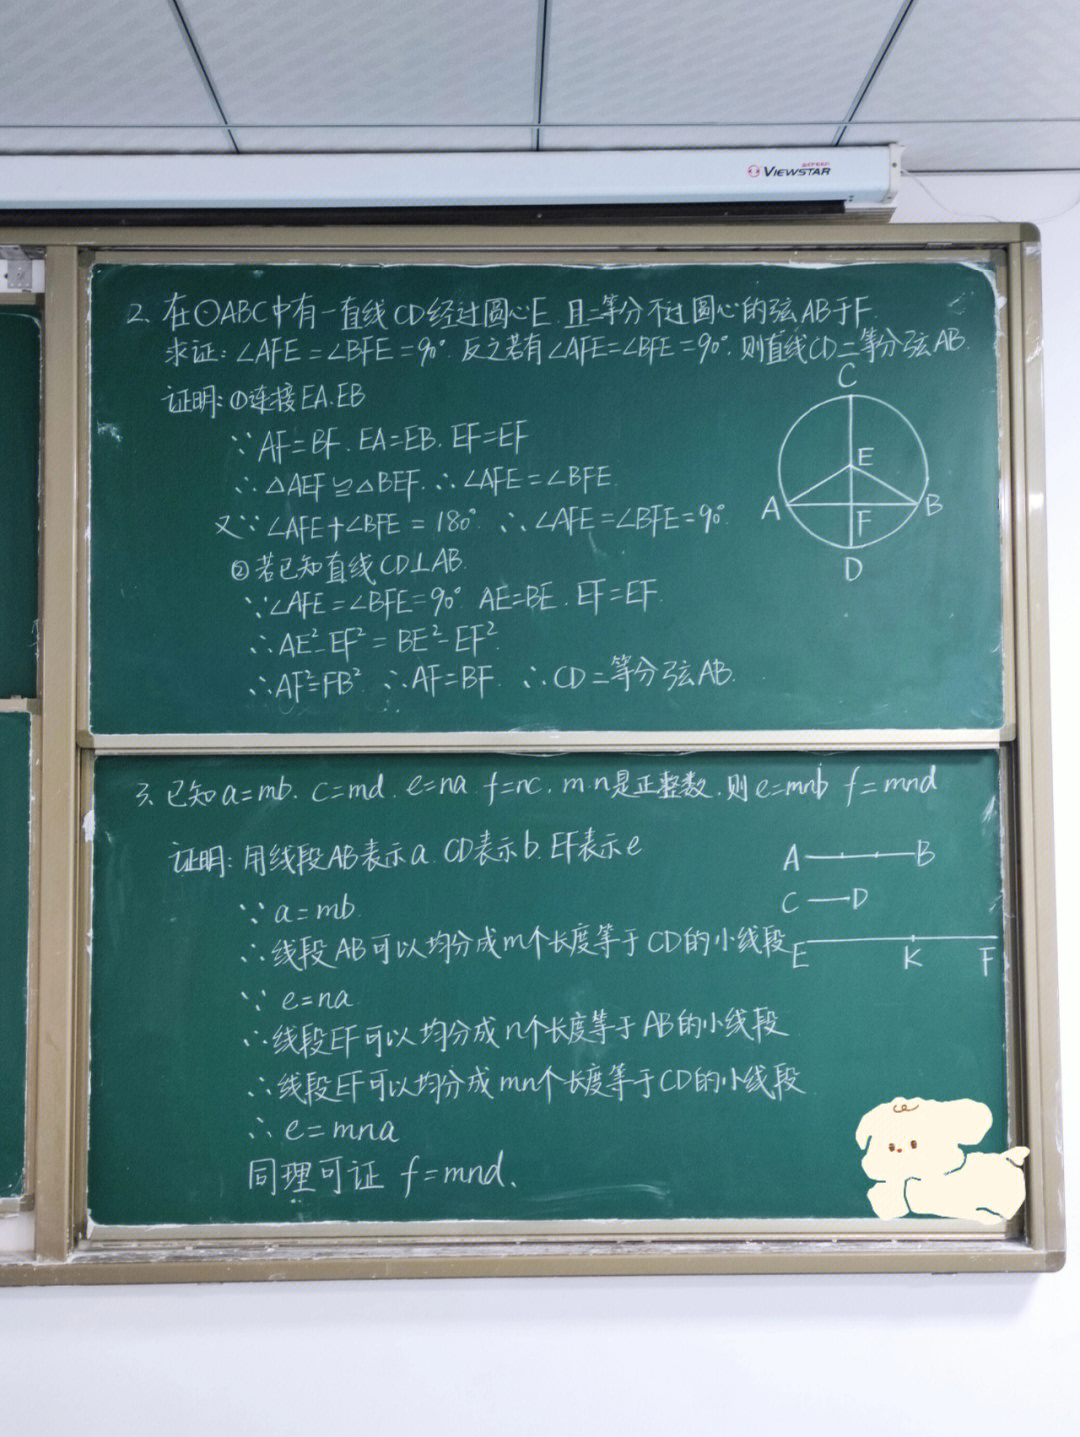 VIEWSTAR
2、在⊙ABC中有一直线CD经过圆心E.且二等分不过圆心的弦AB于F.
求证:∠AFE=∠BFE=90°.反之若有∠AFE=∠BFE=90°.则直线CD二等分弦AB.
证明:①连接EA.EB
∵AF=BF.EA=EB.EF=EF
∴△AEF≌△BEF.∴∠AFE=∠BFE.
又∵∠AFE+∠BFE=180° ∴∠AFE=∠BFE=90°
②若已知直线CD⊥AB.
∵∠AFE=∠BFE=90° AE=BE.EF=EF.
∴AE²-EF²=BE²-EF²
∴AF²=FB² ∴AF=BF.∴CD二等分弦AB.
C
E
A
B
F
D
3、已知a=mb.c=md.e=na f=nc.m.n是正整数.则e=mnb f=mnd
证明:用线段AB表示a.CD表示b.EF表示e
∵a=mb.
∴线段AB可以均分成m个长度等于CD的小线段
∵e=na
∴线段EF可以均分成n个长度等于AB的小线段
∴线段EF可以均分成mn个长度等于CD的小线段
∴e=mna
同理可证 f=mnd.
A B
C D
E K F